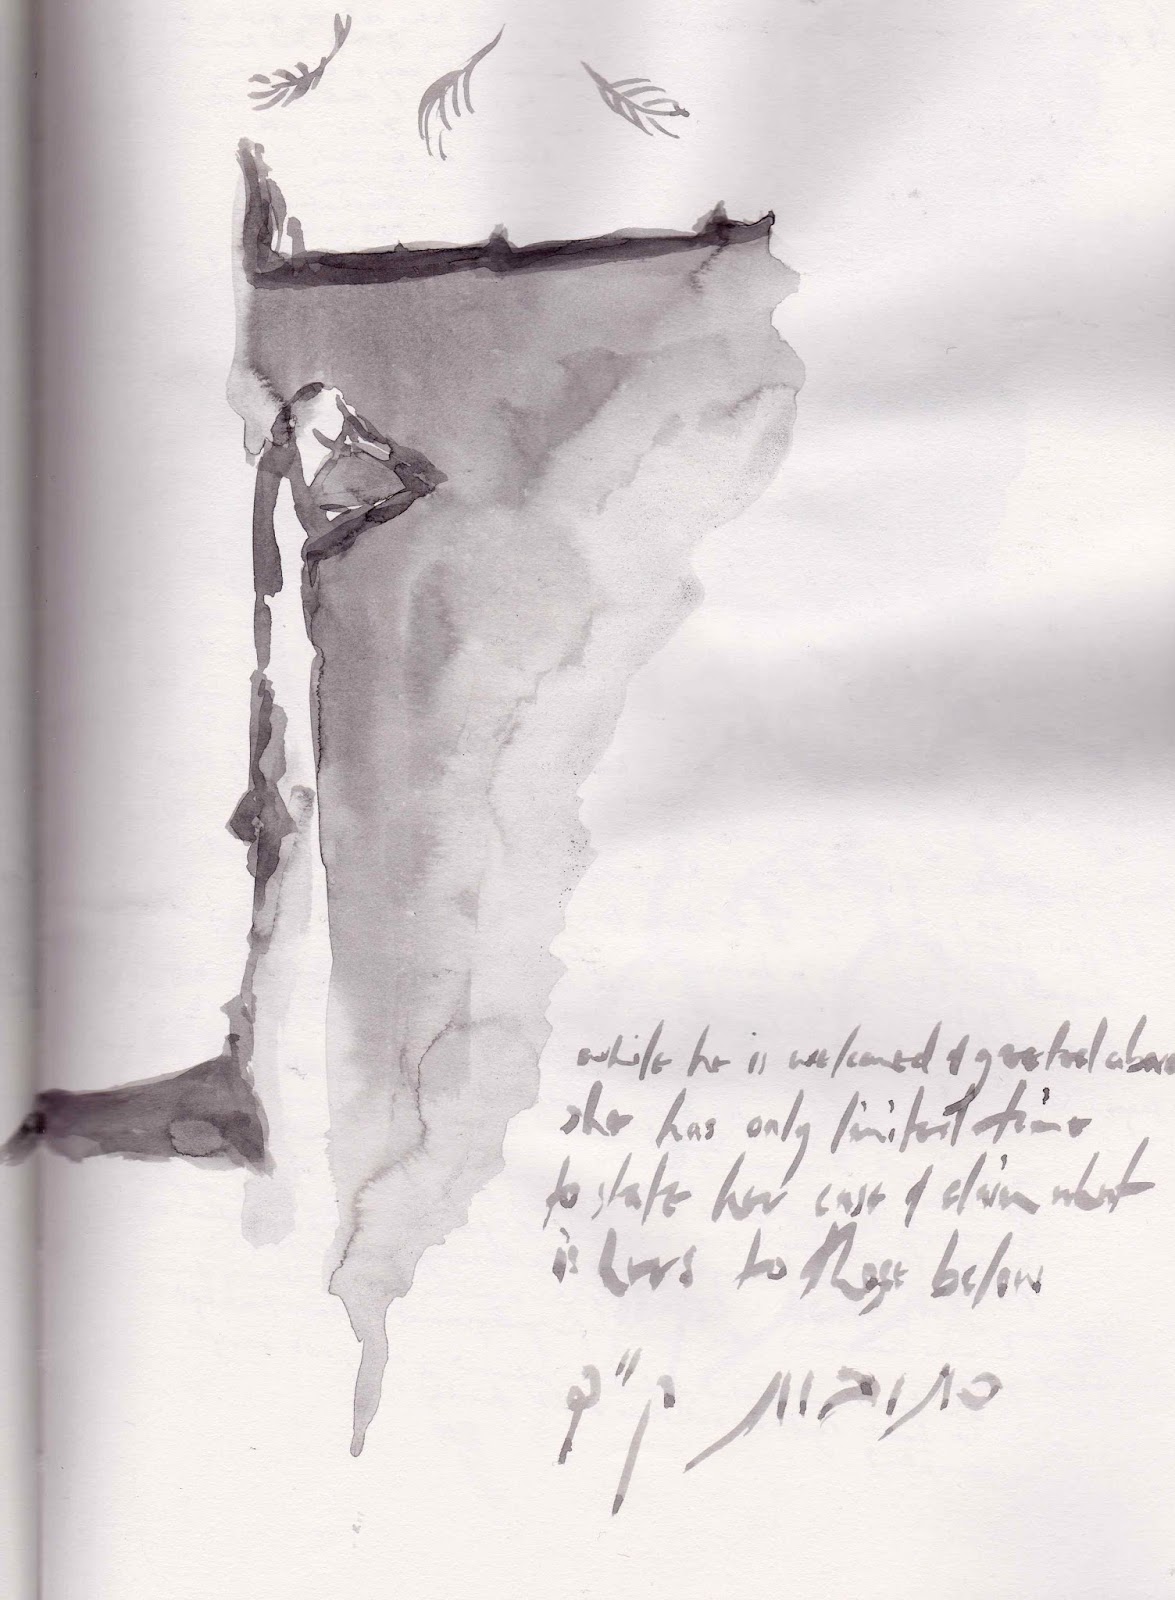 while he is welcomed & greeted above
she has only limited time
to state her case & claim what
is hers to those below
כתובות